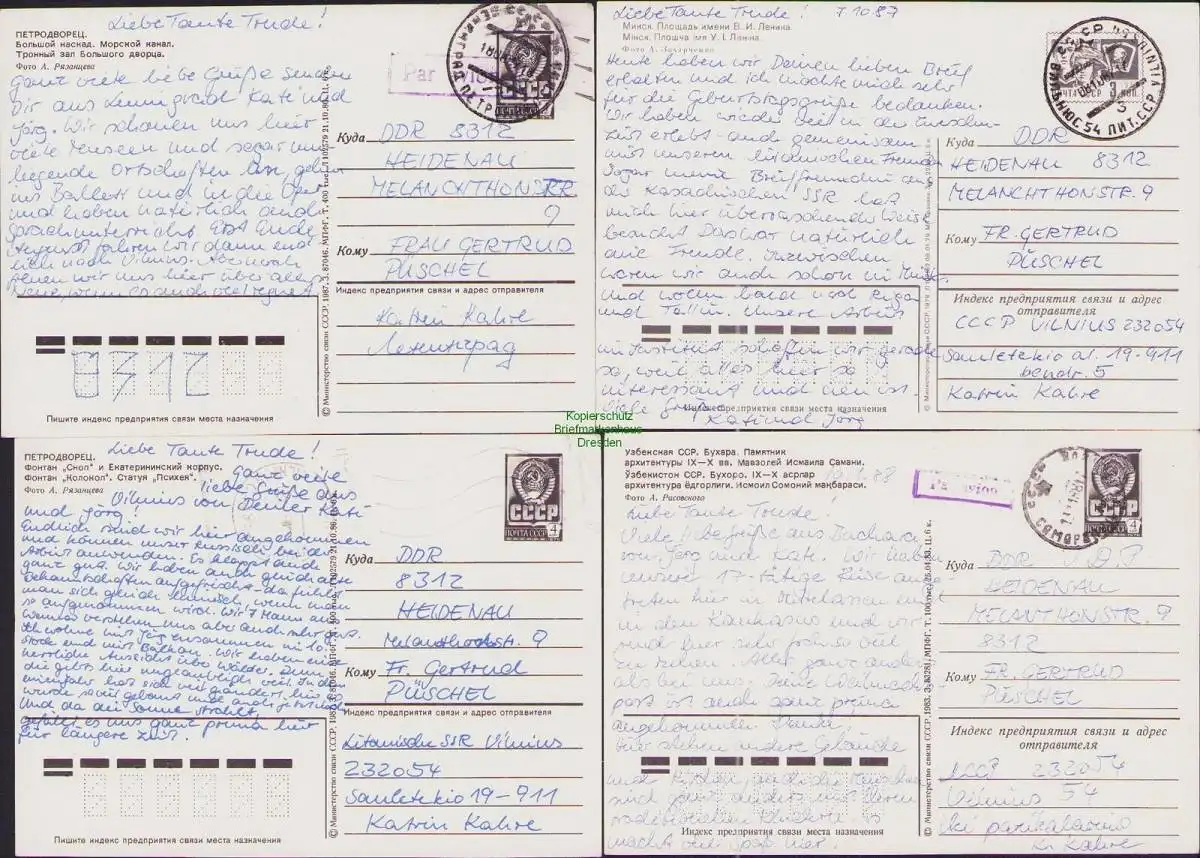 Liebe Tante Trude!
ПЕТРОДВОРЕЦ.
Большой каскад. Морской канал.
Тронный зал Большого дворца.
Фото А. Рязанцева
Ganz viele liebe Grüße senden
Dir aus Leningrad Kati und
Jörg. Wir schauen uns hier
viele Museen und sogar um
liegende Ortschaften an, gehen
ins Ballett und in die Oper
und haben natürlich auch
Sprachunterricht. Ende
August fahren wir dann end
lich nach Vilnius.
sehen wir uns hier über alles
wenn es auch viel regnet.
Par Avion
СССР
ПОЧТА СССР
Куда DDR 8312
HEIDENAU
MELANCHTHONSTR.
9
Кому FRAU GERTRUD
PÜSCHEL
Индекс предприятия связи и адрес отправителя
Katrin Kahre
Ленинград
8312
Пишите индекс предприятия связи места назначения
© Министерство связи СССР. 1987.
Liebe Tante Trude! 7.10.87
Минск. Площадь имени В. И. Ленина.
Мінск. Плошча імя У. І. Леніна.
Фото А. Захарченко
Heute haben wir Deinen lieben Brief
erhalten und ich möchte mich sehr
für die Geburtstagsgrüße bedanken.
Wir haben wieder viel in der Zwischen-
zeit erlebt - auch gemeinsam
mit unseren litauischen Freunden
Sogar meine Brieffreundin aus
der Kasachischen SSR hat
mich hier überraschender Weise
besucht. Das war natürlich
eine Freude. Inzwischen
waren wir auch schon in Minsk
und wollen bald nach Riga
und Tallin. Unsere Arbeit
im Institut schaffen wir gerade
so, weil alles hier so
interessant und neu ist.
Liebe Grüße
Kati und Jörg
ПОЧТА СССР
Куда DDR
HEIDENAU 8312
MELANCHTHONSTR. 9
Кому FR. GERTRUD
PÜSCHEL
Индекс предприятия связи и адрес
отправителя
СССР VILNIUS 232054
Sauletekio al. 19-911
bendr. 5
Katrin Kahre
Индекс предприятия связи места назначения
Kopierschutz
Briefmarkenhaus
Dresden
Liebe Tante Trude!
ПЕТРОДВОРЕЦ.
Фонтан „Сноп" и Екатерининский корпус.
Фонтан „Колокол". Статуя „Психея".
Фото А. Рязанцева
Ganz viele
liebe Grüße aus
Vilnius von Deiner Kati
und Jörg.
Endlich sind wir hier angekommen
und können unser Russisch bei der
Arbeit anwenden. Es klappt auch
ganz gut. Wir haben auch gleich alte
Bekanntschaften aufgefrischt - da fühlt
man sich gleich heimisch, wenn man
so aufgenommen wird. Wir 7 Mann aus
Weimar verstehen uns aber auch sehr gut.
Ich wohne mit Jörg zusammen im 10.
Stock und mit Balkon. Wir haben eine
herrliche Aussicht über Wälder. Denn
die gibts hier unglaublich viel. In dem
einen Jahr hat sich viel verändert, hier
wurde soviel gebaut
Und da die Sonne strahlt,
gefällt es uns ganz prima hier
für längere Zeit.
СССР
ПОЧТА СССР 4
Куда DDR
8312
HEIDENAU
Melanchthonstr. 9
Кому Fr. Gertrud
PÜSCHEL
Индекс предприятия связи и адрес отправителя
Litauische SSR Vilnius
232054
Sauletekio 19-911
Katrin Kahre
Пишите индекс предприятия связи места назначения
© Министерство связи СССР. 1987.
Узбекская ССР. Бухара. Памятник
архитектуры IX—X вв. Мавзолей Исмаила Самани.
Ўзбекистон ССР. Бухоро. IX—X асрлар
архитектура ёдгорлиги. Исмоил Сомоний мақбараси.
Фото А. Рисовского
Liebe Tante Trude!
Viele liebe Grüße aus Buchara
von Jörg und Kati. Wir haben
unsere 17-tägige Reise ange-
treten hier in Mittelasien und
in den Kaukasus und wir
sind hier sehr
zu sehen. Alles ganz anders
als bei uns. Deine Weihnachts-
post ist auch ganz prima
angekommen. Danke!
Hier stehen andere Gebäude
sind ganz anders mit ihren
macht viel Spaß hier.
Par avion
СССР
ПОЧТА СССР 4
Куда DDR
HEIDENAU
MELANTHONSTR. 9
8312
Кому FR. GERTRUD
PÜSCHEL
Индекс предприятия связи и адрес
отправителя
СССР 232054
Vilnius 54
iki pareikalavimo
K. Kahre
Индекс предприятия связи места назначения
© Министерство связи СССР. 1983.